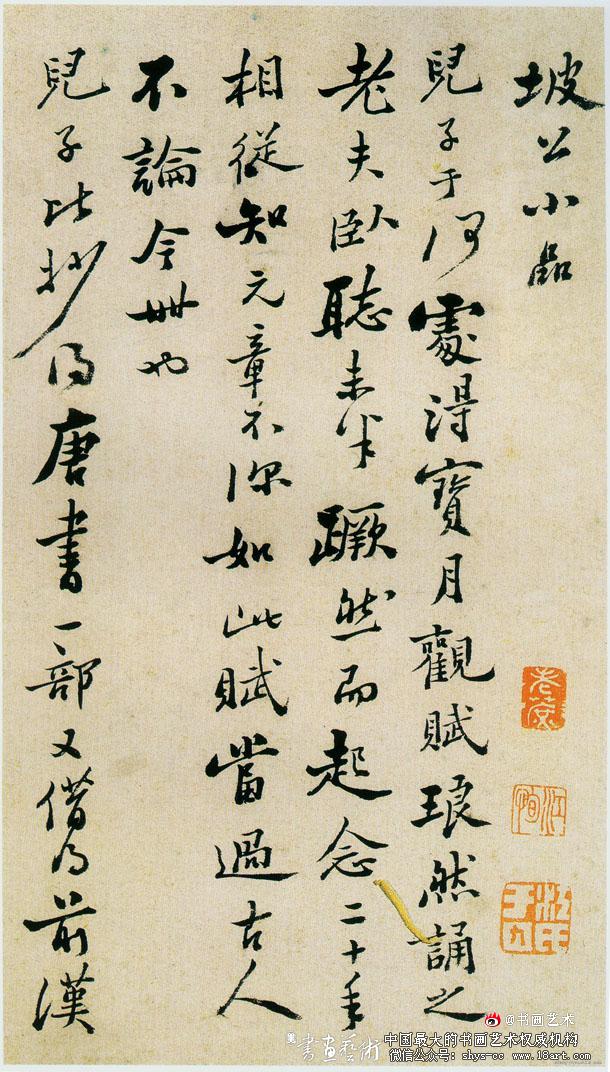 坡公小品
兒子于何處得寶月觀賦琅然誦之
老夫臥聽未半蹶然而起念二十年
相從知元章不深如此賦當過古人
不論今世也
兒子比抄得唐書一部又借得前漢
@书画艺术
書畫藝術
中国最大的书画艺术权威机构
微信公众号：shys-cc www.18art.com